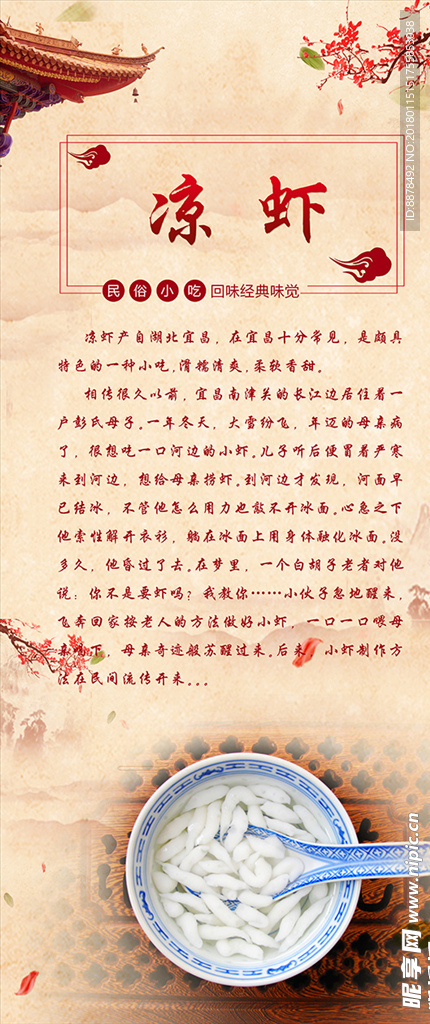 凉虾
民俗小吃 回味经典味觉
凉虾产自湖北宜昌，在宜昌十分常见，是颇具
特色的一种小吃，滑糯清爽，柔软香甜。
相传很久以前，宜昌南津关的长江边居住着一
户彭氏母子。一年冬天，大雪纷飞，年迈的母亲病
了，很想吃一口河边的小虾。儿子听后便冒着严寒
来到河边，想给母亲捞虾。到河边才发现，河面早
已结冰，不管他怎么用力也敲不开冰面。心急之下
他索性解开衣衫，躺在冰面上用身体融化冰面。没
多久，他昏过了去。在梦里，一个白胡子老者对他
说：你不是要虾吗？我教你……小伙子忽地醒来，
飞奔回家按老人的方法做好小虾，一口一口喂母
亲喝下，母亲奇迹般苏醒过来。后来，小虾制作方
法在民间流传开来。。。
ID:8878492 NO:20180115151759853038
昵享网 www.nipic.cn